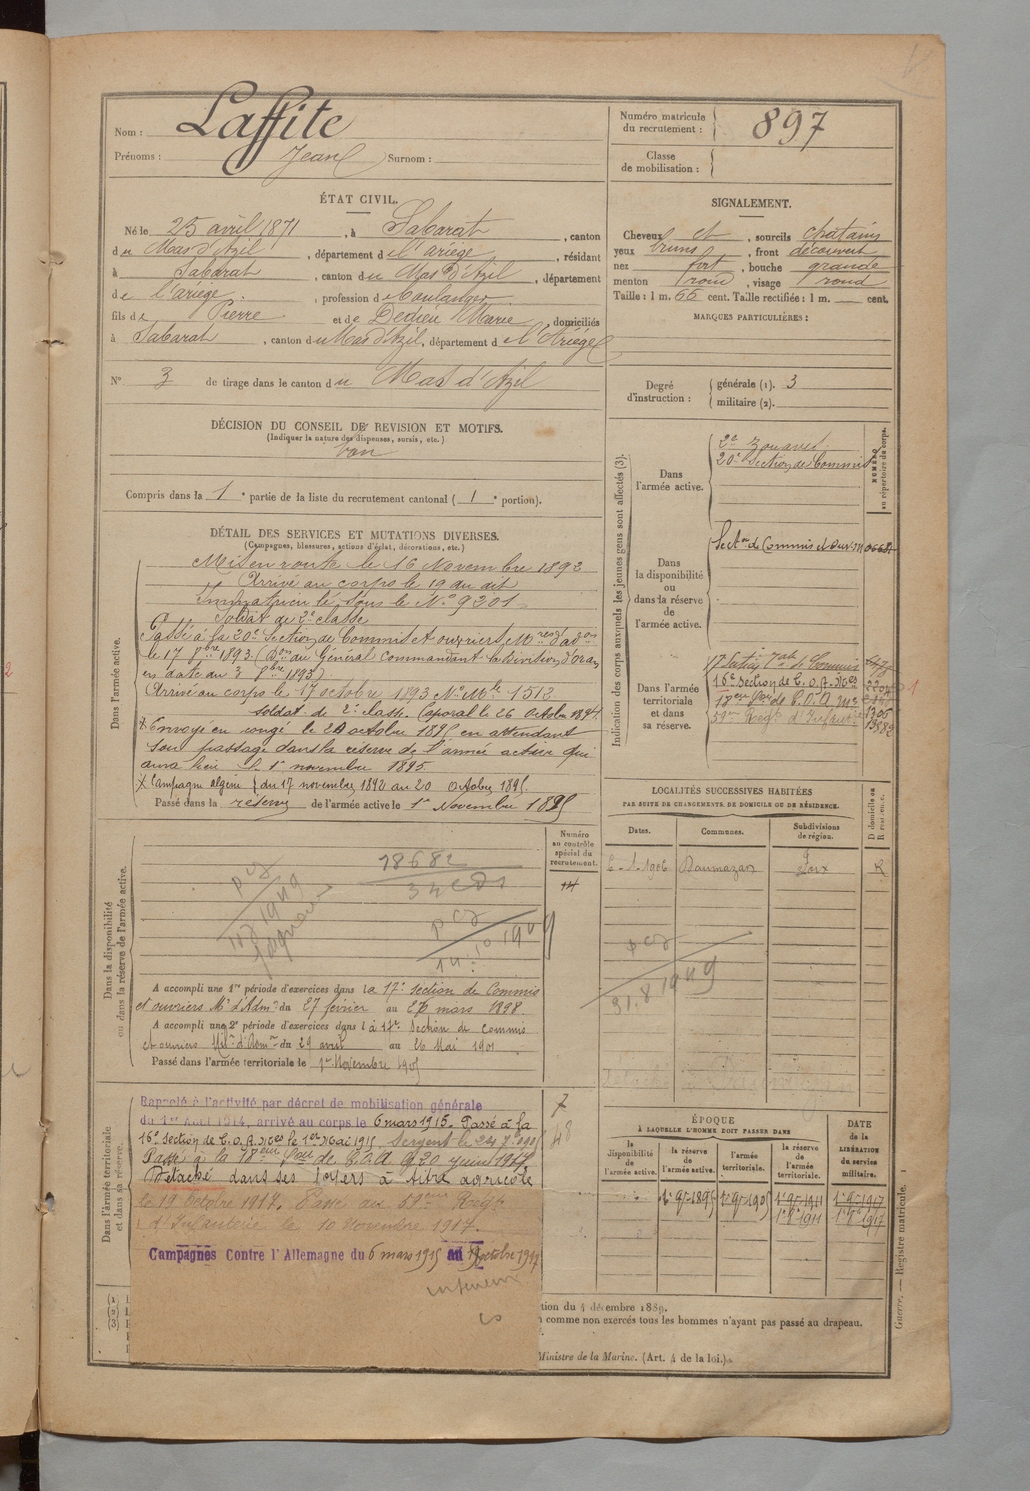 Nom : Laffite
Prénoms : Jean Surnom :
Numéro matricule du recrutement : 897
Classe de mobilisation :
ÉTAT CIVIL.
Né le 25 avril 1871, à Sabarat, canton
du Mas d'Azil, département de l'ariège, résidant
à Sabarat, canton du Mas d'Azil, département
de l'ariège, profession de Boulanger
fils de Pierre et de Dedieu Marie, domiciliés
à Sabarat, canton du Mas d'Azil, département de l'Ariége
N° 3 de tirage dans le canton du Mas d'Azil
SIGNALEMENT.
Cheveux et, sourcils chatains
yeux bruns, front découvert
nez fort, bouche grande
menton rond, visage rond
Taille : 1 m. 66 cent. Taille rectifiée : 1 m. cent.
MARQUES PARTICULIÈRES :
Degré d'instruction : générale (1). 3
militaire (2).
DÉCISION DU CONSEIL DE REVISION ET MOTIFS.
(Indiquer la nature des dispenses, sursis, etc.)
bon
Compris dans la 1e partie de la liste du recrutement cantonal (1e portion).
DÉTAIL DES SERVICES ET MUTATIONS DIVERSES.
(Campagnes, blessures, actions d'éclat, décorations, etc.)
Dans l'armée active.
Mis en route le 16 Novembre 1892
Arrivé au corps le 19 au dit
Immatriculé sous le N° 9201
Soldat de 2e classe
Passé à la 20e Section de Commis et ouvriers Mres d'adon
le 17 8bre 1893 (Don du Général Commandant la Division d'Oran
en date du 3 8bre 1893)
Arrivé au corps le 17 octobre 1893 N° Mle 1513
soldat de 2e classe Caporal le 26 octobre 1894
Envoyé en congé le 20 octobre 1895 en attendant
son passage dans la réserve de l'armée active qui
aura lieu le 1er novembre 1895
Campagne algérie } du 17 novembre 1892 au 20 octobre 1895
Passé dans la réserve de l'armée active le 1er Novembre 1895
Indication des corps auxquels les jeunes gens sont affectés (3).
NUMÉRO au répertoire du corps.
Dans l'armée active.
2e Zouaves
20e Section de Commis
Dans la disponibilité ou dans la réserve de l'armée active.
Secton de Commis et Ouv. M 06681
Dans l'armée territoriale et dans sa réserve.
17 Section Tale de Commis
16e Section de C.O.A. Mres
18eme Son de C.O.A. Mre
59me Régt d'Infanterie
LOCALITÉS SUCCESSIVES HABITÉES
PAR SUITE DE CHANGEMENTS DE DOMICILE OU DE RÉSIDENCE.
Dates. Communes. Subdivisions de région. D domicile ou R résidence.
1906 Daumazan Foix R
Dans la disponibilité ou dans la réserve de l'armée active.
Numéro au contrôle spécial du recrutement.
18682
14.10 1909
31.8 1949
A accompli une 1re période d'exercices dans la 17e section de Commis
et ouvriers Mre d'Adm. du 27 février au 26 mars 1898
A accompli une 2e période d'exercices dans la 17e Section de commis
et ouvriers Mil. d'Adm. du 29 avril au 26 Mai 1901
Passé dans l'armée territoriale le 1er Novembre 1905
Dans l'armée territoriale et dans sa réserve.
Rappelé à l'activité par décret de mobilisation générale
du 1er Août 1914, arrivé au corps le 6 mars 1915. Passé à la
16e Section de C.O.A. Mres le 1er Mai 1915 Sergent le
Passé à la 18eme Son de C.O.A. le 20 juin 1917
Détaché dans ses foyers à titre agricole
le 19 Octobre 1917. Passé au 59eme Régt
d'Infanterie le 10 Novembre 1917.
Campagnes Contre l'Allemagne du 6 mars 1915 au 19 octobre 1917
intérieur
ÉPOQUE
À LAQUELLE L'HOMME DOIT PASSER DANS
la disponibilité de l'armée active.
la réserve de l'armée active.
l'armée territoriale.
la réserve de l'armée territoriale.
DATE de la LIBÉRATION du service militaire.
tion du 4 décembre 1889.
comme non exercés tous les hommes n'ayant pas passé au drapeau.
Ministre de la Marine. (Art. 4 de la loi.)
Guerre. — Registre matricule.